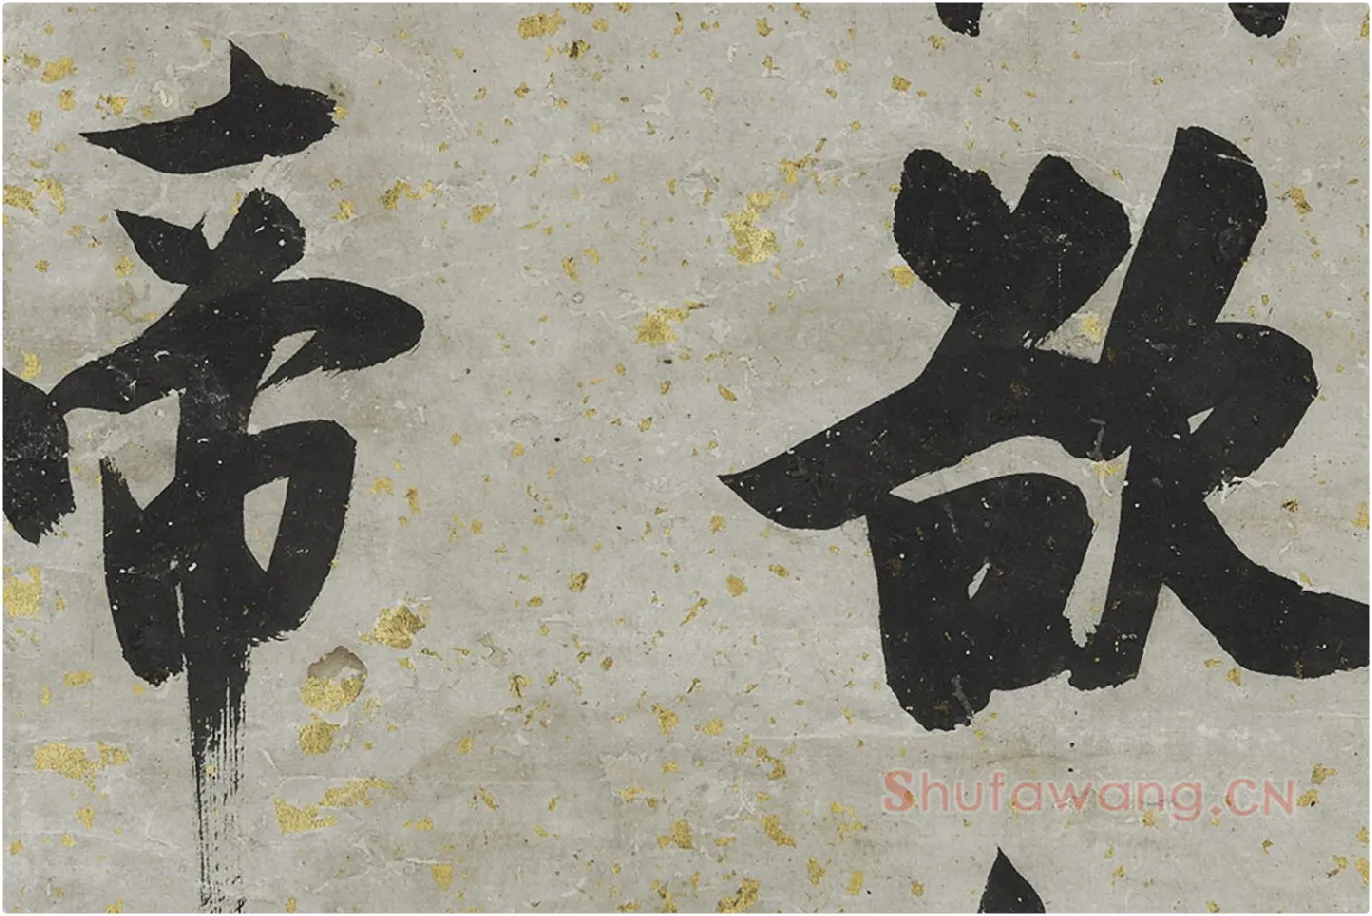 欲
帝
Shufawang.CN